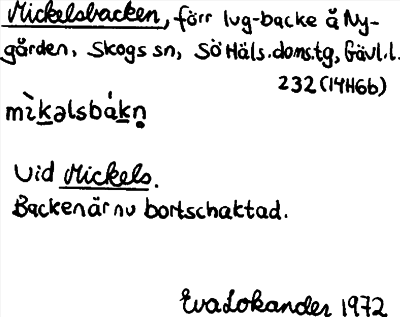 Mickelsbacken, förr lvg-backe å Ny-
gården, Skogs sn, SöHäls.doms.tg, Gävl.l.
232 (14H6b)
mìkəlsbákn̥
Vid Mickels.
Backen är nu bortschaktad.
Eva Lokander 1972